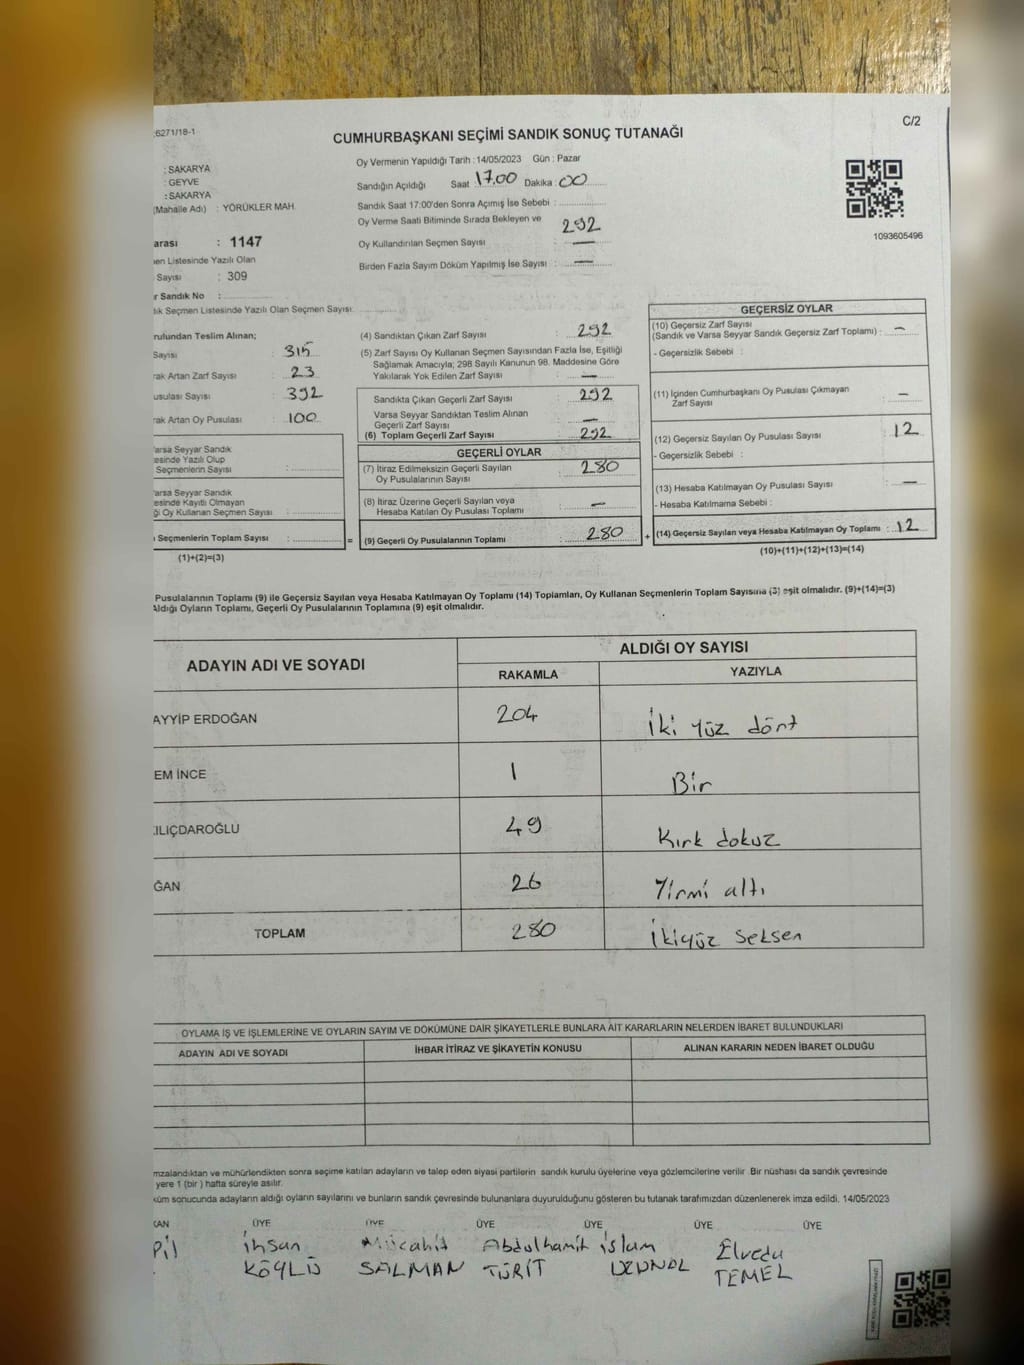 6271/18-1
C/2
CUMHURBAŞKANI SEÇİMİ SANDIK SONUÇ TUTANAĞI
: SAKARYA
: GEYVE
: SAKARYA
(Mahalle Adı) : YÖRÜKLER MAH.
arası : 1147
en Listesinde Yazılı Olan
Sayısı : 309
r Sandık No :
lık Seçmen Listesinde Yazılı Olan Seçmen Sayısı:
Oy Vermenin Yapıldığı Tarih : 14/05/2023 Gün : Pazar
Sandığın Açıldığı Saat : 17.00 Dakika : 00
Sandık Saat 17:00'den Sonra Açımış İse Sebebi :
Oy Verme Saati Bitiminde Sırada Bekleyen ve 292
Oy Kullandırılan Seçmen Sayısı —
Birden Fazla Sayım Döküm Yapılmış İse Sayısı : —
1093605496
rulundan Teslim Alınan;
Sayısı : 315
rak Artan Zarf Sayısı : 23
usulası Sayısı : 392
rak Artan Oy Pusulası : 100
Varsa Seyyar Sandık
esinde Yazılı Olup
Seçmenlerin Sayısı :
Varsa Seyyar Sandık
esinde Kayıtlı Olmayan
ği Oy Kullanan Seçmen Sayısı :
ı Seçmenlerin Toplam Sayısı : =
(1)+(2)=(3)
(4) Sandıktan Çıkan Zarf Sayısı : 292
(5) Zarf Sayısı Oy Kullanan Seçmen Sayısından Fazla İse, Eşitliği
Sağlamak Amacıyla; 298 Sayılı Kanunun 98. Maddesine Göre
Yakılarak Yok Edilen Zarf Sayısı : —
Sandıkta Çıkan Geçerli Zarf Sayısı : 292
Varsa Seyyar Sandıktan Teslim Alınan
Geçerli Zarf Sayısı : —
(6) Toplam Geçerli Zarf Sayısı : 292
GEÇERLİ OYLAR
(7) İtiraz Edilmeksizin Geçerli Sayılan
Oy Pusulalarının Sayısı : 280
(8) İtiraz Üzerine Geçerli Sayılan veya
Hesaba Katılan Oy Pusulası Toplamı : —
(9) Geçerli Oy Pusulalarının Toplamı : 280 +
GEÇERSİZ OYLAR
(10) Geçersiz Zarf Sayısı
(Sandık ve Varsa Seyyar Sandık Geçersiz Zarf Toplamı) : —
- Geçersizlik Sebebi :
(11) İçinden Cumhurbaşkanı Oy Pusulası Çıkmayan
Zarf Sayısı : —
(12) Geçersiz Sayılan Oy Pusulası Sayısı : 12
- Geçersizlik Sebebi :
(13) Hesaba Katılmayan Oy Pusulası Sayısı : —
- Hesaba Katılmama Sebebi :
(14) Geçersiz Sayılan veya Hesaba Katılmayan Oy Toplamı : 12
(10)+(11)+(12)+(13)=(14)
Pusulalarının Toplamı (9) ile Geçersiz Sayılan veya Hesaba Katılmayan Oy Toplamı (14) Toplamları, Oy Kullanan Seçmenlerin Toplam Sayısına (3) eşit olmalıdır. (9)+(14)=(3)
Aldığı Oyların Toplamı, Geçerli Oy Pusulalarının Toplamına (9) eşit olmalıdır.
ADAYIN ADI VE SOYADI ALDIĞI OY SAYISI
RAKAMLA YAZIYLA
AYYİP ERDOĞAN 204 İki yüz dört
EM İNCE 1 Bir
ILIÇDAROĞLU 49 Kırk dokuz
ĞAN 26 Yirmi altı
TOPLAM 280 İkiyüz Seksen
OYLAMA İŞ VE İŞLEMLERİNE VE OYLARIN SAYIM VE DÖKÜMÜNE DAİR ŞİKAYETLERLE BUNLARA AİT KARARLARIN NELERDEN İBARET BULUNDUKLARI
ADAYIN ADI VE SOYADI İHBAR İTİRAZ VE ŞİKAYETİN KONUSU ALINAN KARARIN NEDEN İBARET OLDUĞU
mzalandıktan ve mühürlendikten sonra seçime katılan adayların ve talep eden siyasi partilerin sandık kurulu üyelerine veya gözlemcilerine verilir. Bir nüshası da sandık çevresinde
yere 1 (bir) hafta süreyle asılır.
küm sonucunda adayların aldığı oyların sayılarını ve bunların sandık çevresinde bulunanlara duyurulduğunu gösteren bu tutanak tarafımızdan düzenlenerek imza edildi. 14/05/2023
KAN ÜYE ÜYE ÜYE ÜYE ÜYE ÜYE
Pil İhsan Mücahit Abdulhamit İslam Elveda
KÖYLÜ SALMAN TÜRİT UZUNAL TEMEL